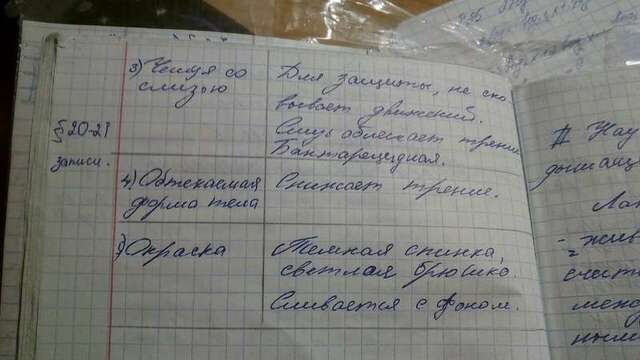 § 20-21
записи.
3) Чешуя со
слизью
Для защиты, не ско-
вывает движений.
Слизь облегчает трение
Бактерецидная.
4) Обтекаемая
форма тела
Снижает трение.
Окраска
Темная спинка,
светлая брюшко
Сливается с фоном.
II Нау
дышащ
Лан
- живо
счит
межд
ным